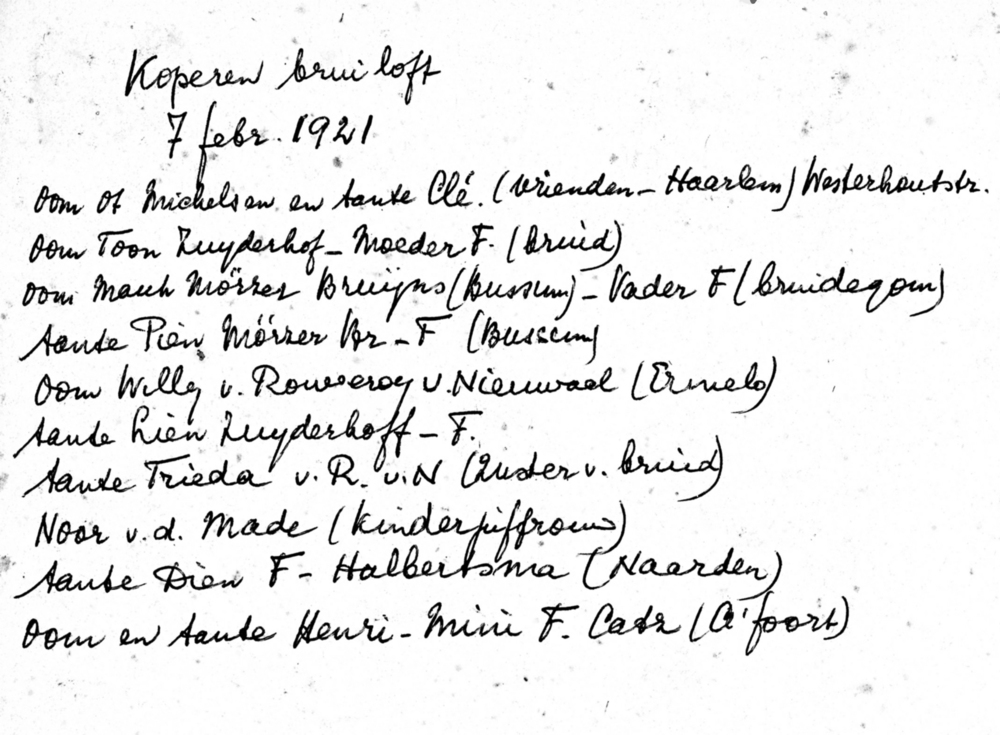 Koperen bruiloft
7 febr. 1921
Oom Ot Michelsen en tante Clé. (vrienden - Haarlem) Westerhoutstr.
Oom Toon Zuyderhof - Moeder F. (bruid)
Oom Mauk Mörzer Bruijns (Bussum) - Vader F (bruidegom)
tante Pien Mörzer Br - F (Bussum)
Oom Willy v. Rouveroy v. Nieuwaal (Ermelo)
tante Lien Zuyderhoff - F.
tante Frieda v. R. v. N (zuster v. bruid)
Noor v. d. Made (kinderjuffrouw)
tante Dien F - Halbertsma (Naarden)
Oom en tante Henri - Mini F. Catz (A'foort)